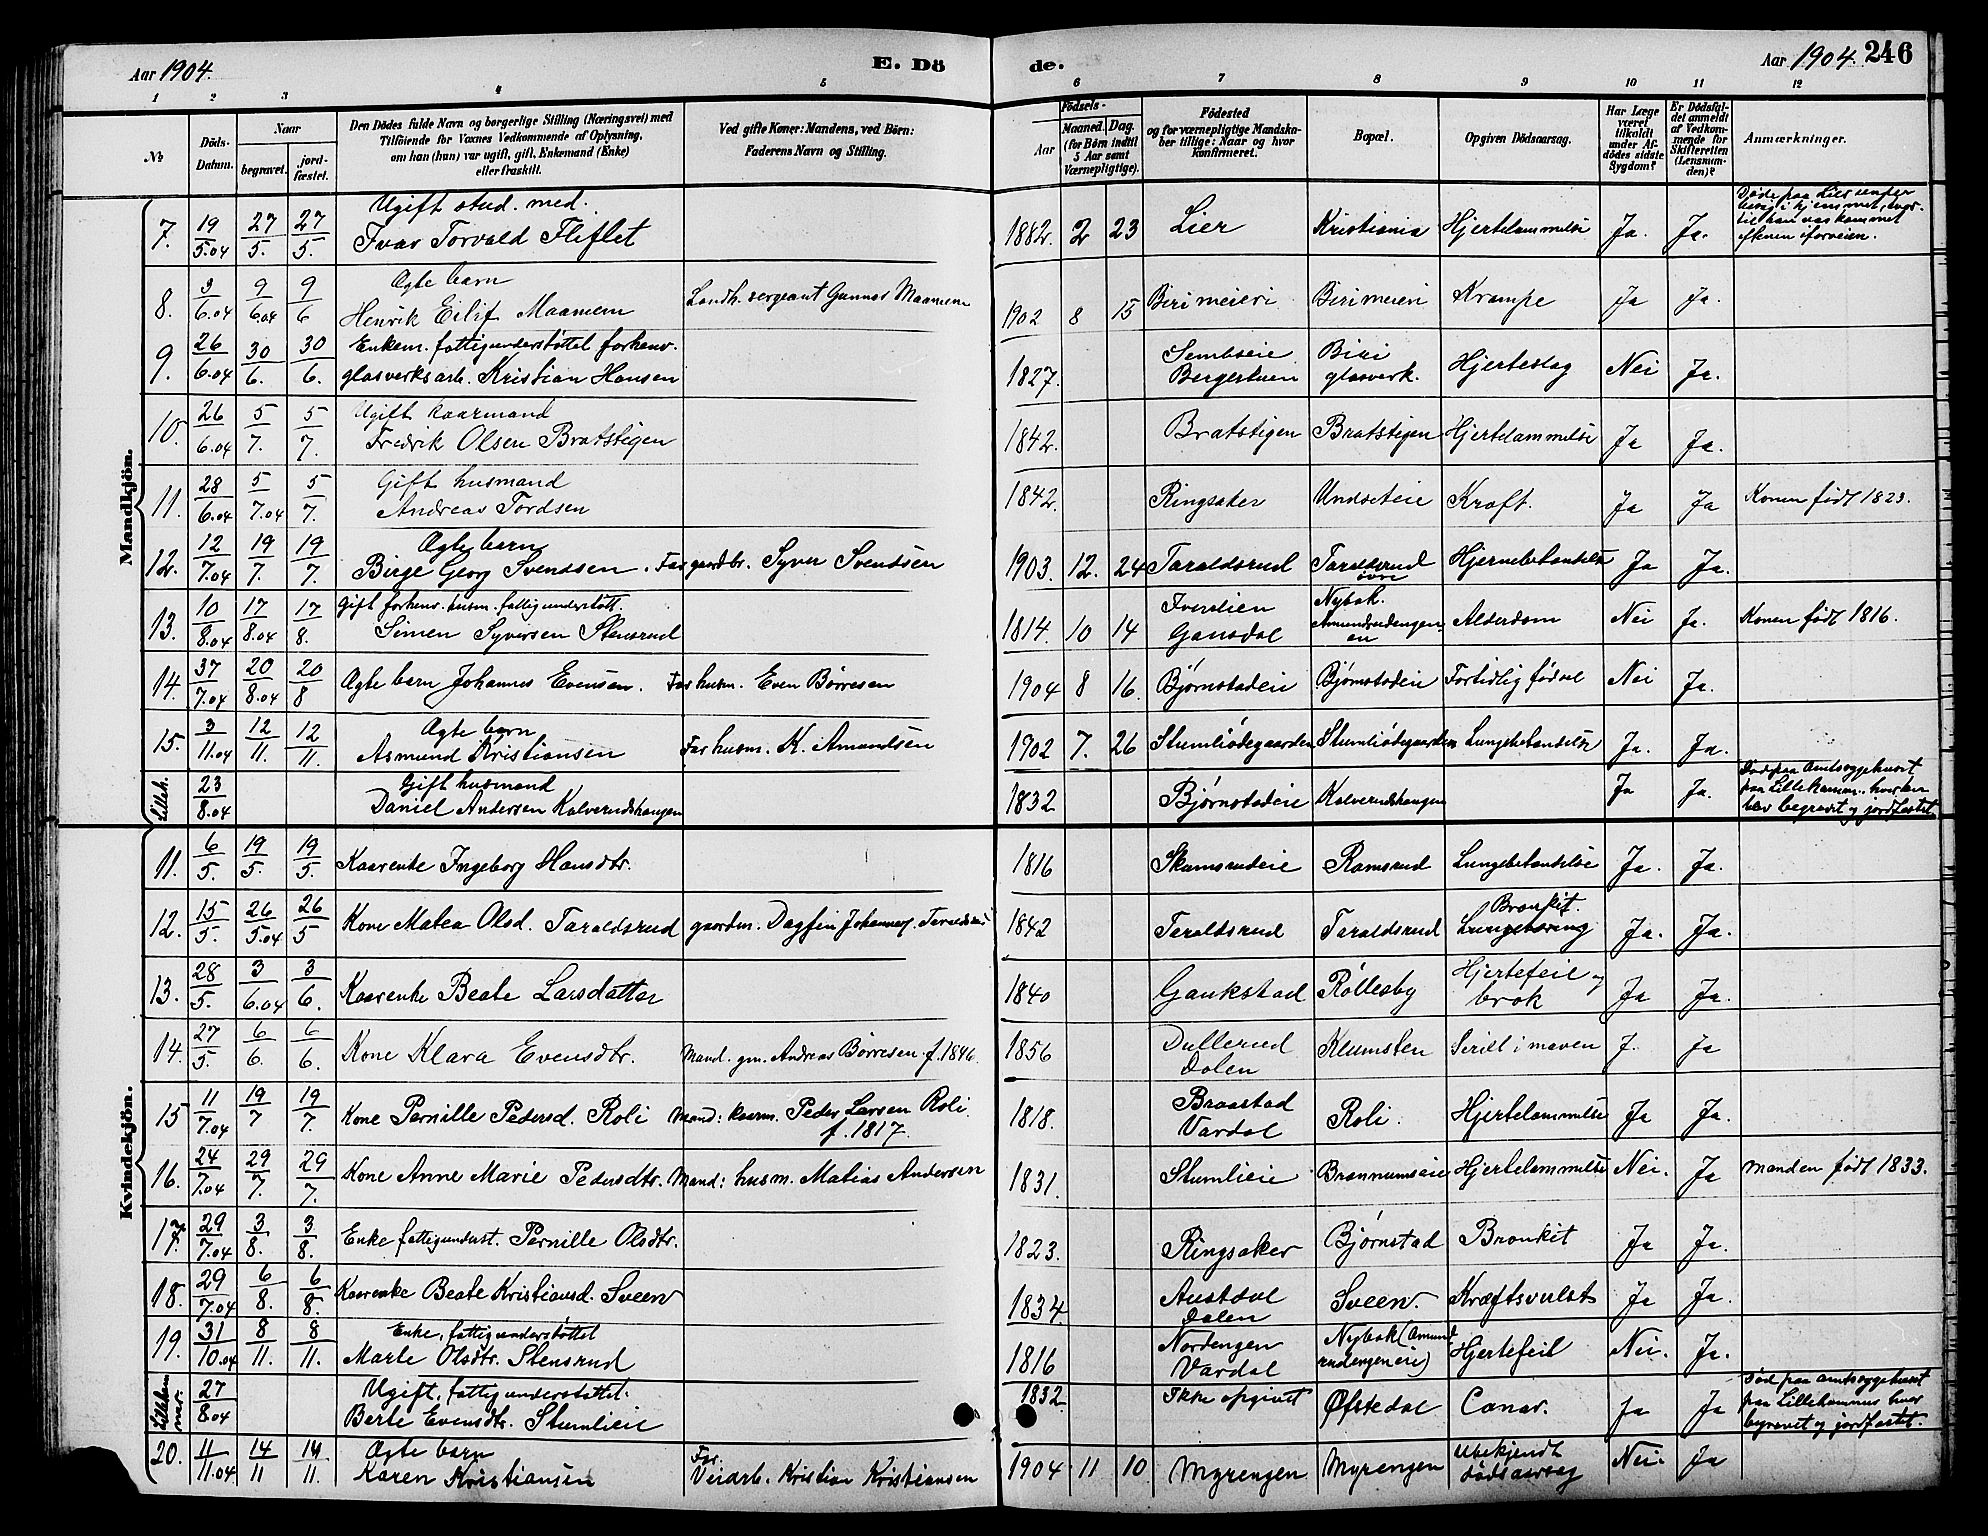 Aar 1904.
E. Dö
de.
Aar 1904. 246
1 2 3 4 5 6 7 8 9 10 11 12
No
Döds-Datum.
Naar
begravet. jordfæstet.
Den Dödes fulde Navn og borgerlige Stilling (Næringsvei) med
Tilföiende for Voxnes Vedkommende af Oplysning,
om han (hun) var ugift, gift, Enkemand (Enke)
eller fraskilt.
Ved gifte Koner: Mandens, ved Börn:
Faderens Navn og Stilling.
Födsels-
Aar
Maaned. Dag.
(for Börn indtil
5 Aar samt
Værnepligtige).
Födested
og for værnepligtige Mandska-
ber tillige: Naar og hvor
konfirmeret.
Bopæl.
Opgiven Dödsaarsag.
Har Læge
været
tilkaldt
under Af-
dödes sidste
Sygdom?
Er Dödsfal-
det anmeldt
af Vedkom-
mende for
Skifteretten
(Lensman-
den)?
Anmærkninger.
Mandkjön.
7. 19/5.04 27/5. 27/5. Ugift stud. med.
Ivar Torvald Fliflet 1882. 2 23 Lier Kristiania Hjertelammelse Ja. Ja.
8. 3/6.04 9/6.04 9/6 Ægte barn
Henrik Eilif Maamoen Landh. sergeant Gunnar Maamoen 1902 8 15 Biri meieri Biri meieri Krampe Ja Ja.
9. 26/6.04 30/6. 30/6. Enkem. fattigunderstöttet forhenv.
glasverksarb. Kristian Hansen 1827. Sembseie
Bergerstuen Biri
glasverk. Hjerteslag Nei Ja.
10. 26/6.04 5/7. 5/7. Ugift kaarmand
Fredrik Olsen Bratstigen 1842. Bratstigen Bratstigen Hjertelammelse Ja Ja.
11. 28/6.04 5/7.04 5/7. Gift husmand
Andreas Tordsen 1842. Ringsaker Undseteie Kræft. Ja Ja Konen født 1823.
12. 12/7.04 19/7. 19/7. Ægte barn
Birge Georg Svendsen. Far gaardbr. Syver Svendsen 1903. 12. 24 Taraldsrud Taraldsrud
øvre Hjernebetændelse Ja Ja.
13. 10/8.04 17/8.04 17/8. Gift forhenv. husm. fattigunderstött.
Simen Syversen Stensrud 1814. 10 14 Iverslien
Gausdal Nybak.
Amundrudengen Alderdom Nei Ja. Konen født 1816.
14. 37/7.04 20/8.04 20/8 Ægte barn Johannes Evensen. Far husm. Even Børresen 1904 8 16 Bjørnstadeie Bjørnstadeie Fortidlig fødsel Nei Ja.
15. 3/11.04 12/11. 12/11. Ægte barn
Asmund Kristiansen Far husm. K. Amundsen 1902 7. 26 Stumliødegaarden Stumliødegaarden Lungebetændelse Ja. Ja.
Lilleh. 23/8.04 Gift husmand
Daniel Andersen Kalverudshaugen 1832 Bjørnstadeie Kalverudshaugen Ja Ja. Død paa Amtssygehuset
paa Lillehammer, hvor han
blev begravet og jordfæstet.
Kvindekjön.
11. 6/5. 19/5. 19/5. Kaarenke Ingeborg Hansdtr. 1816 Skumsrudeie Ramsrud Lungebetændelse Ja. Ja.
12. 15/5. 26/5.04 26/5 Kone Matea Olsd. Taraldsrud gaardm. Dagfin Johannes. Taraldsrud 1842 Taraldsrud Taraldsrud Bronkit.
Lungetæring Ja. Ja.
13. 28/5. 3/6.04 3/6. Kaarenke Beate Larsdatter 1840 Gaukstad Røllesby Hjertefeil og
brok Ja Ja.
14. 27/5. 6/6. 6/6. Kone Klara Evensdtr. Mand. gm. Andreas Børresen f. 1846. 1856 Dullerud
Dalen Klumsten Serill i maven J. Ja
15 11/7.04 19/7 19/7. Kone Pernille Pedersd. Roli Mand: kaarm. Peder Larsen Roli.
f. 1817. 1818. Braastad
Vardal Roli. Hjertelammelse Ja Ja.
16. 24/7.04 29/7. 29/7. Kone Anne Marie Pedersdtr. Mand: husm. Matias Andersen 1831. Stumlieie Brønnumseie Hjertelammelse Nei. Ja manden født 1833.
17. 29/7.04 3/8. 3/8. Enke fattigunderst. Pernille Olsdtr. 1823. Ringsaker Bjørnstad Bronkit Ja Ja.
18. 29/7.04 6/8. 6/8. Kaarenke Beate Kristiansd. Sveen 1834 Austdal
Dalen Sveen. Kræftsvulst Ja Ja.
19. 31/10.04 8/11. 8/11. Enke, fattigunderstøttet
Marte Olsdtr. Stensrud 1816 Nordengen
Vardal Nybak (Amund
rudengeneie) Hjertefeil Nei. Ja.
Lilleham
mer. 27/8.04 Ugift, fattigunderstøttet.
Berte Evensdtr. Stumlieie 1832. Ikke opgivet Øfstedal Cancer. Ja Ja Død paa Amtssygehuset
paa Lillehammer hvor
begravet og jordfæstet.
20. 11/11.04 14/11 14/11. Ægte barn
Karen Kristiansen Far.
Veiarb. Kristian Kristiansen 1904 11 10 Myrengen Myrengen Ubekjendt
dødsaarsag Nei. Ja